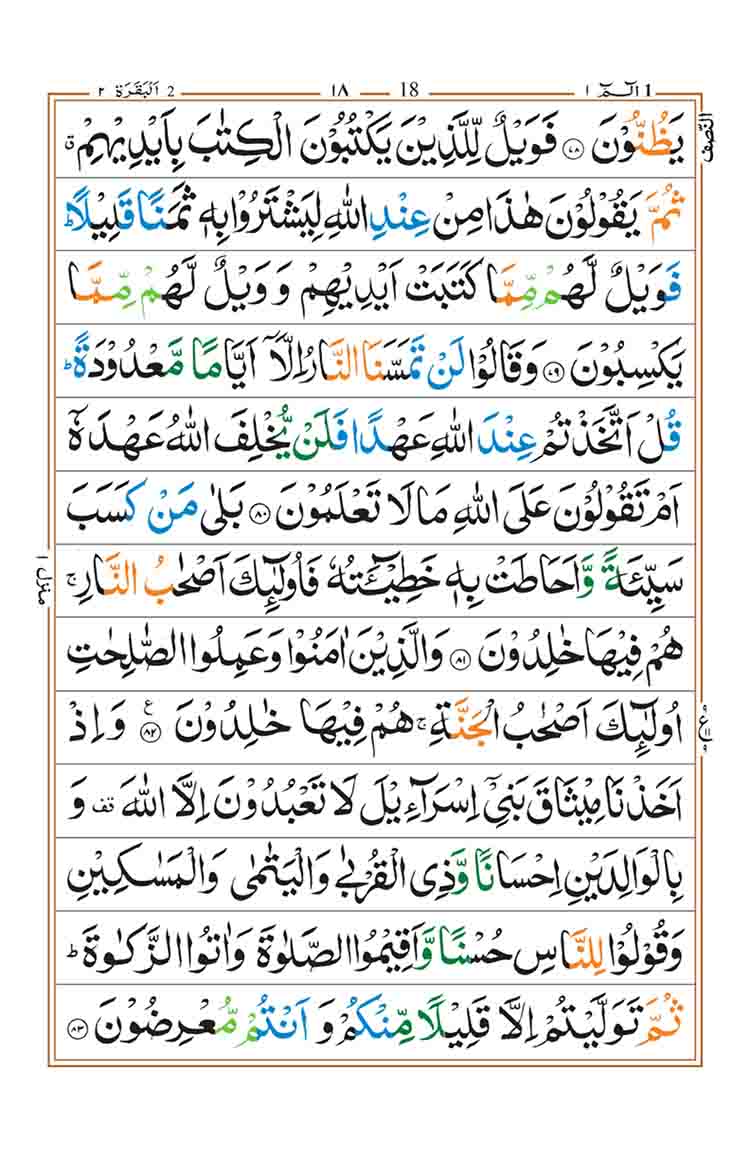 الٓمّٓ ١ 1 — 18 — ١٨ — 2 اَلْبَقَرَة ٢
النّصف
يَظُنُّوْنَ ﴿۷۸﴾ فَوَيْلٌ لِّلَّذِيْنَ يَكْتُبُوْنَ الْكِتٰبَ بِاَيْدِيْهِمْ ۗ
ثُمَّ يَقُوْلُوْنَ هٰذَا مِنْ عِنْدِ اللّٰهِ لِيَشْتَرُوْا بِهٖ ثَمَنًا قَلِيْلًا ؕ
فَوَيْلٌ لَّهُمْ مِّمَّا كَتَبَتْ اَيْدِيْهِمْ وَ وَيْلٌ لَّهُمْ مِّمَّا
يَكْسِبُوْنَ ﴿۷۹﴾ وَقَالُوْا لَنْ تَمَسَّنَا النَّارُ اِلَّاۤ اَيَّامًا مَّعْدُوْدَةً ؕ
قُلْ اَتَّخَذْتُمْ عِنْدَ اللّٰهِ عَهْدًا فَلَنْ يُّخْلِفَ اللّٰهُ عَهْدَهٗۤ
اَمْ تَقُوْلُوْنَ عَلَى اللّٰهِ مَا لَا تَعْلَمُوْنَ ﴿۸۰﴾ بَلٰى مَنْ كَسَبَ
سَيِّئَةً وَّاَحَاطَتْ بِهٖ خَطِيْٓـَٔتُهٗ فَاُولٰٓئِكَ اَصْحٰبُ النَّارِ ۚ
منزل ١
هُمْ فِيْهَا خٰلِدُوْنَ ﴿۸۱﴾ وَالَّذِيْنَ اٰمَنُوْا وَعَمِلُوا الصّٰلِحٰتِ
اُولٰٓئِكَ اَصْحٰبُ الْجَنَّةِ ۚ هُمْ فِيْهَا خٰلِدُوْنَ ﴿۸۲﴾ ع وَاِذْ
اَخَذْنَا مِيْثَاقَ بَنِيْٓ اِسْرَآءِيْلَ لَا تَعْبُدُوْنَ اِلَّا اللّٰهَ قف وَ
بِالْوَالِدَيْنِ اِحْسَانًا وَّذِى الْقُرْبٰى وَالْيَتٰمٰى وَالْمَسٰكِيْنِ
وَقُوْلُوْا لِلنَّاسِ حُسْنًا وَّاَقِيْمُوا الصَّلٰوةَ وَاٰتُوا الزَّكٰوةَ ؕ
ثُمَّ تَوَلَّيْتُمْ اِلَّا قَلِيْلًا مِّنْكُمْ وَ اَنْتُمْ مُّعْرِضُوْنَ ﴿۸۳﴾